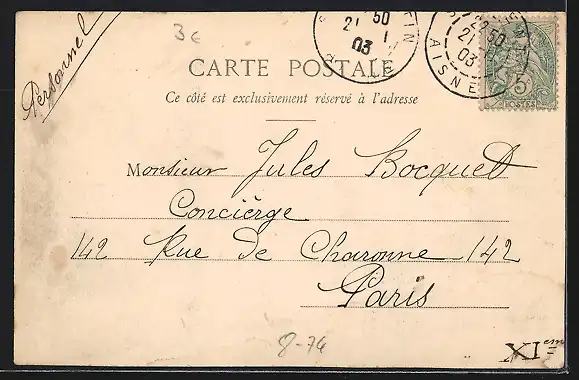 Personnel
3€
21 50
1
03
TIN
22 50
21
03
AISNE
5
POSTES
CARTE POSTALE
Ce côté est exclusivement réservé à l'adresse
Monsieur Jules Bocquet
Concièrge
142 Rue de Charonne - 142
Paris
8-74
XIem